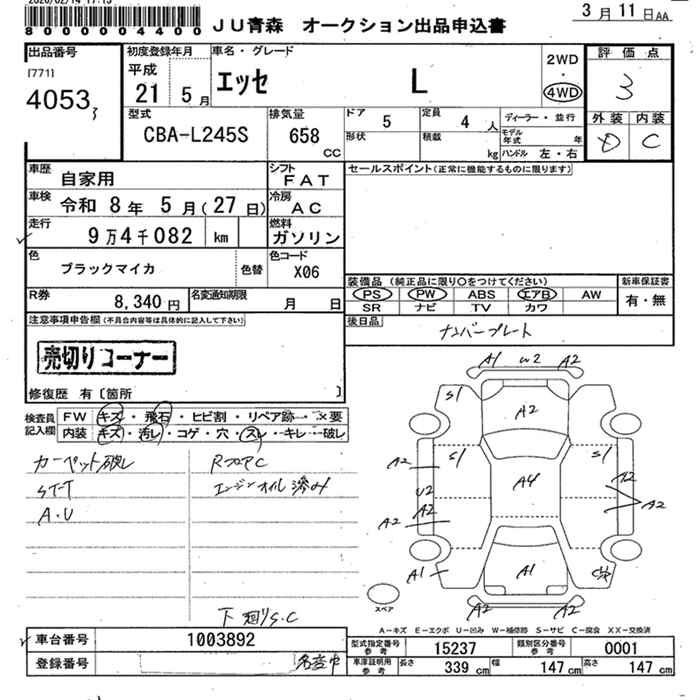 2026/02/14 17:15
8000004400
JU青森 オークション出品申込書
3月11日AA
出品番号
[771]
4053
初度登録年月
平成
21 5月
車名・グレード
エッセ L
2WD
・
4WD
評価点
3
外装 内装
D C
型式
CBA-L245S
排気量
658 CC
ドア 5
定員 4 人
形状
積載 kg
ディーラー・並行
モデル年式 年
ハンドル 左・右
車歴
自家用
シフト
FAT
車検
令和 8年 5月(27日)
冷房
AC
走行
9万4千082 km
燃料
ガソリン
色
ブラックマイカ
色替
色コード
X06
R券
8,340円
名変通知期限
月 日
セールスポイント(正常に機能するものに限ります)
装備品(純正品に限り○をつけてください)
PS PW ABS エアB AW
SR ナビ TV カワ
新車保証書
有・無
後日品
ナンバープレート
注意事項申告欄(不具合内容等は具体的に記入して下さい)
売切りコーナー
修復歴 有〔箇所 〕
検査員
記入欄
FW キズ・飛石・ヒビ割・リペア跡・×要
内装 キズ・汚レ・コゲ・穴・スレ・キレ・破レ
カーペット破レ
ST-T
A・U
RフロアC
エンジンオイル滲み
下廻りS.C
A1 U2 A2
S1
A2
S1
S1
A2
A2
A4
U2
A2
A2
A2
A2
A1
A1
A2 A2
スペア
A-キズ E-エクボ U-凹み W-補修跡 S-サビ C-腐食 XX-交換済
車台番号
1003892
登録番号
名変中
型式指定番号
参考
15237
類別区分番号
参考
0001
車庫証明用
参考
長さ 339 cm
幅 147 cm
高さ 147 cm